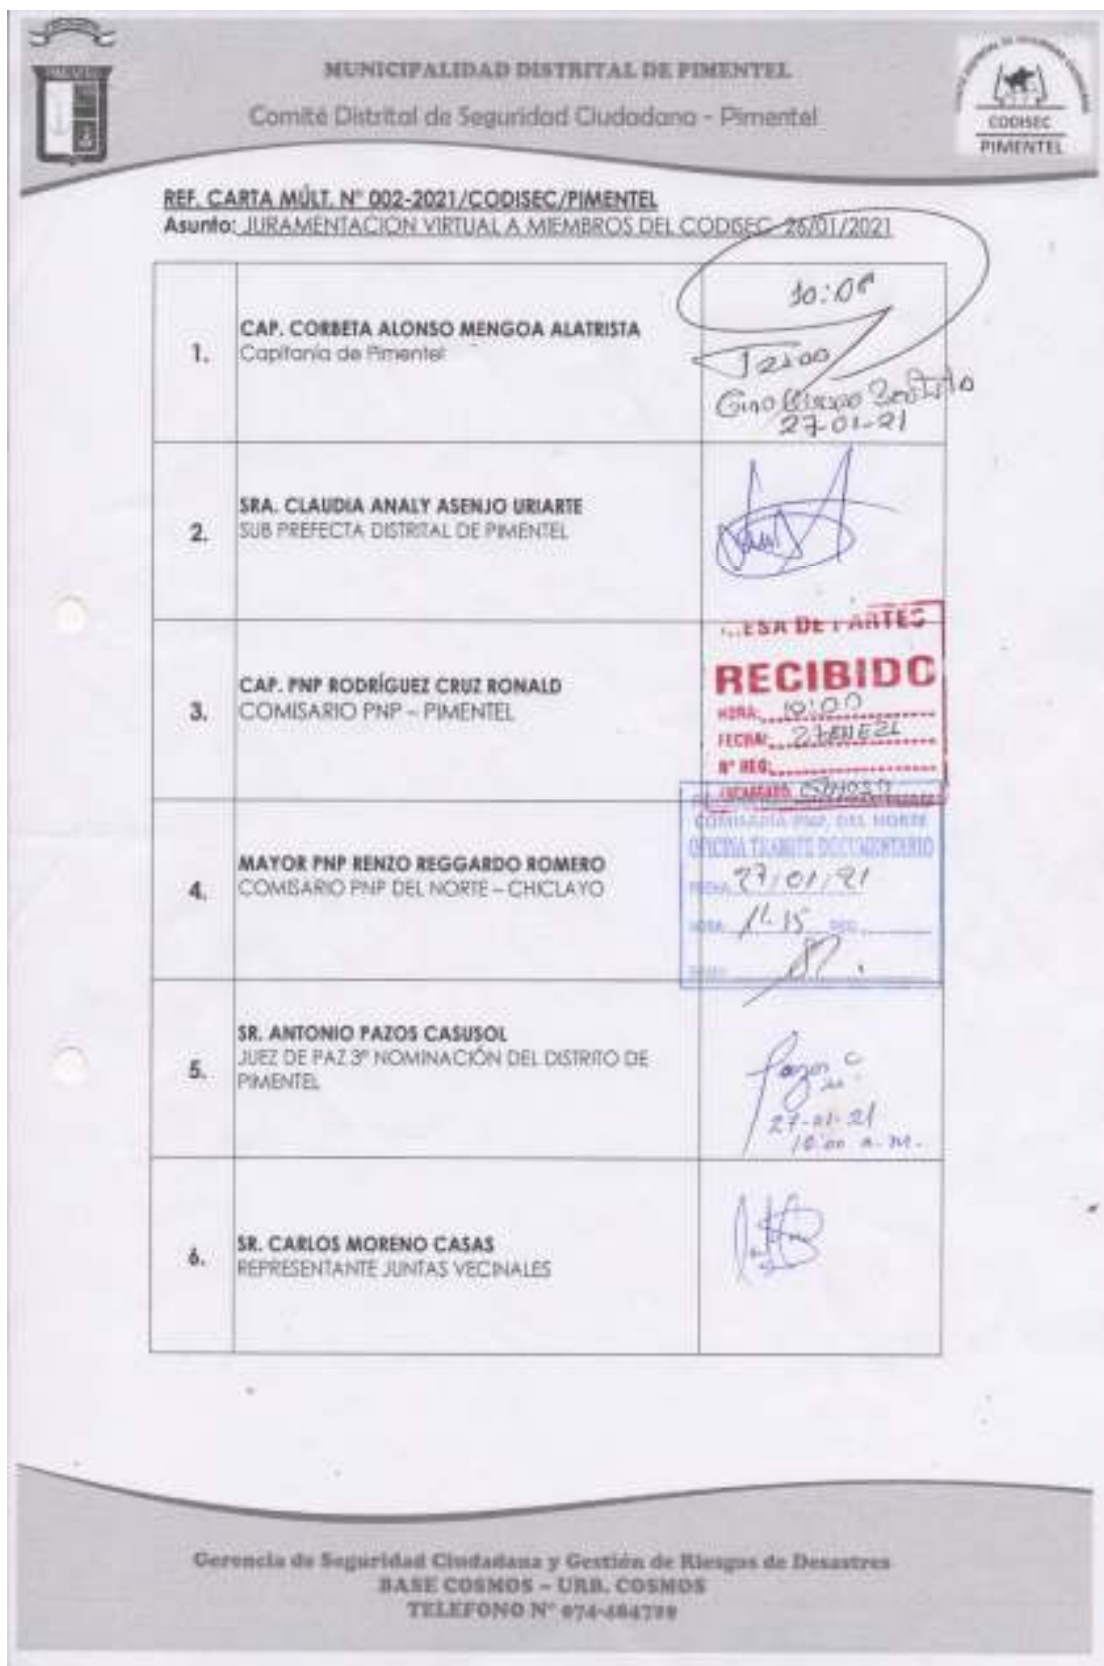 MUNICIPALIDAD DISTRITAL DE PIMENTEL
Comité Distrital de Seguridad Ciudadana - Pimentel
CODISEC
PIMENTEL
REF. CARTA MÚLT. N° 002-2021/CODISEC/PIMENTEL
Asunto: JURAMENTACION VIRTUAL A MIEMBROS DEL CODISEC 26/01/2021
1.
CAP. CORBETA ALONSO MENGOA ALATRISTA
Capitanía de Pimentel
27-01-21
2.
SRA. CLAUDIA ANALY ASENJO URIARTE
SUB PREFECTA DISTRITAL DE PIMENTEL
3.
CAP. PNP RODRÍGUEZ CRUZ RONALD
COMISARIO PNP – PIMENTEL
MESA DE PARTES
RECIBIDO
HORA: 10:00
FECHA: 27 ENE 21
N° REG:
4.
MAYOR PNP RENZO REGGARDO ROMERO
COMISARIO PNP DEL NORTE – CHICLAYO
COMISARIA PNP. DEL NORTE
OFICINA TRAMITE DOCUMENTARIO
FECHA 27/01/21
HORA 11.15
5.
SR. ANTONIO PAZOS CASUSOL
JUEZ DE PAZ 3° NOMINACIÓN DEL DISTRITO DE
PIMENTEL
Pazos C
27-01-21
a.m.
6.
SR. CARLOS MORENO CASAS
REPRESENTANTE JUNTAS VECINALES
Gerencia de Seguridad Ciudadana y Gestión de Riesgos de Desastres
BASE COSMOS – URB. COSMOS
TELEFONO N° 074-484799